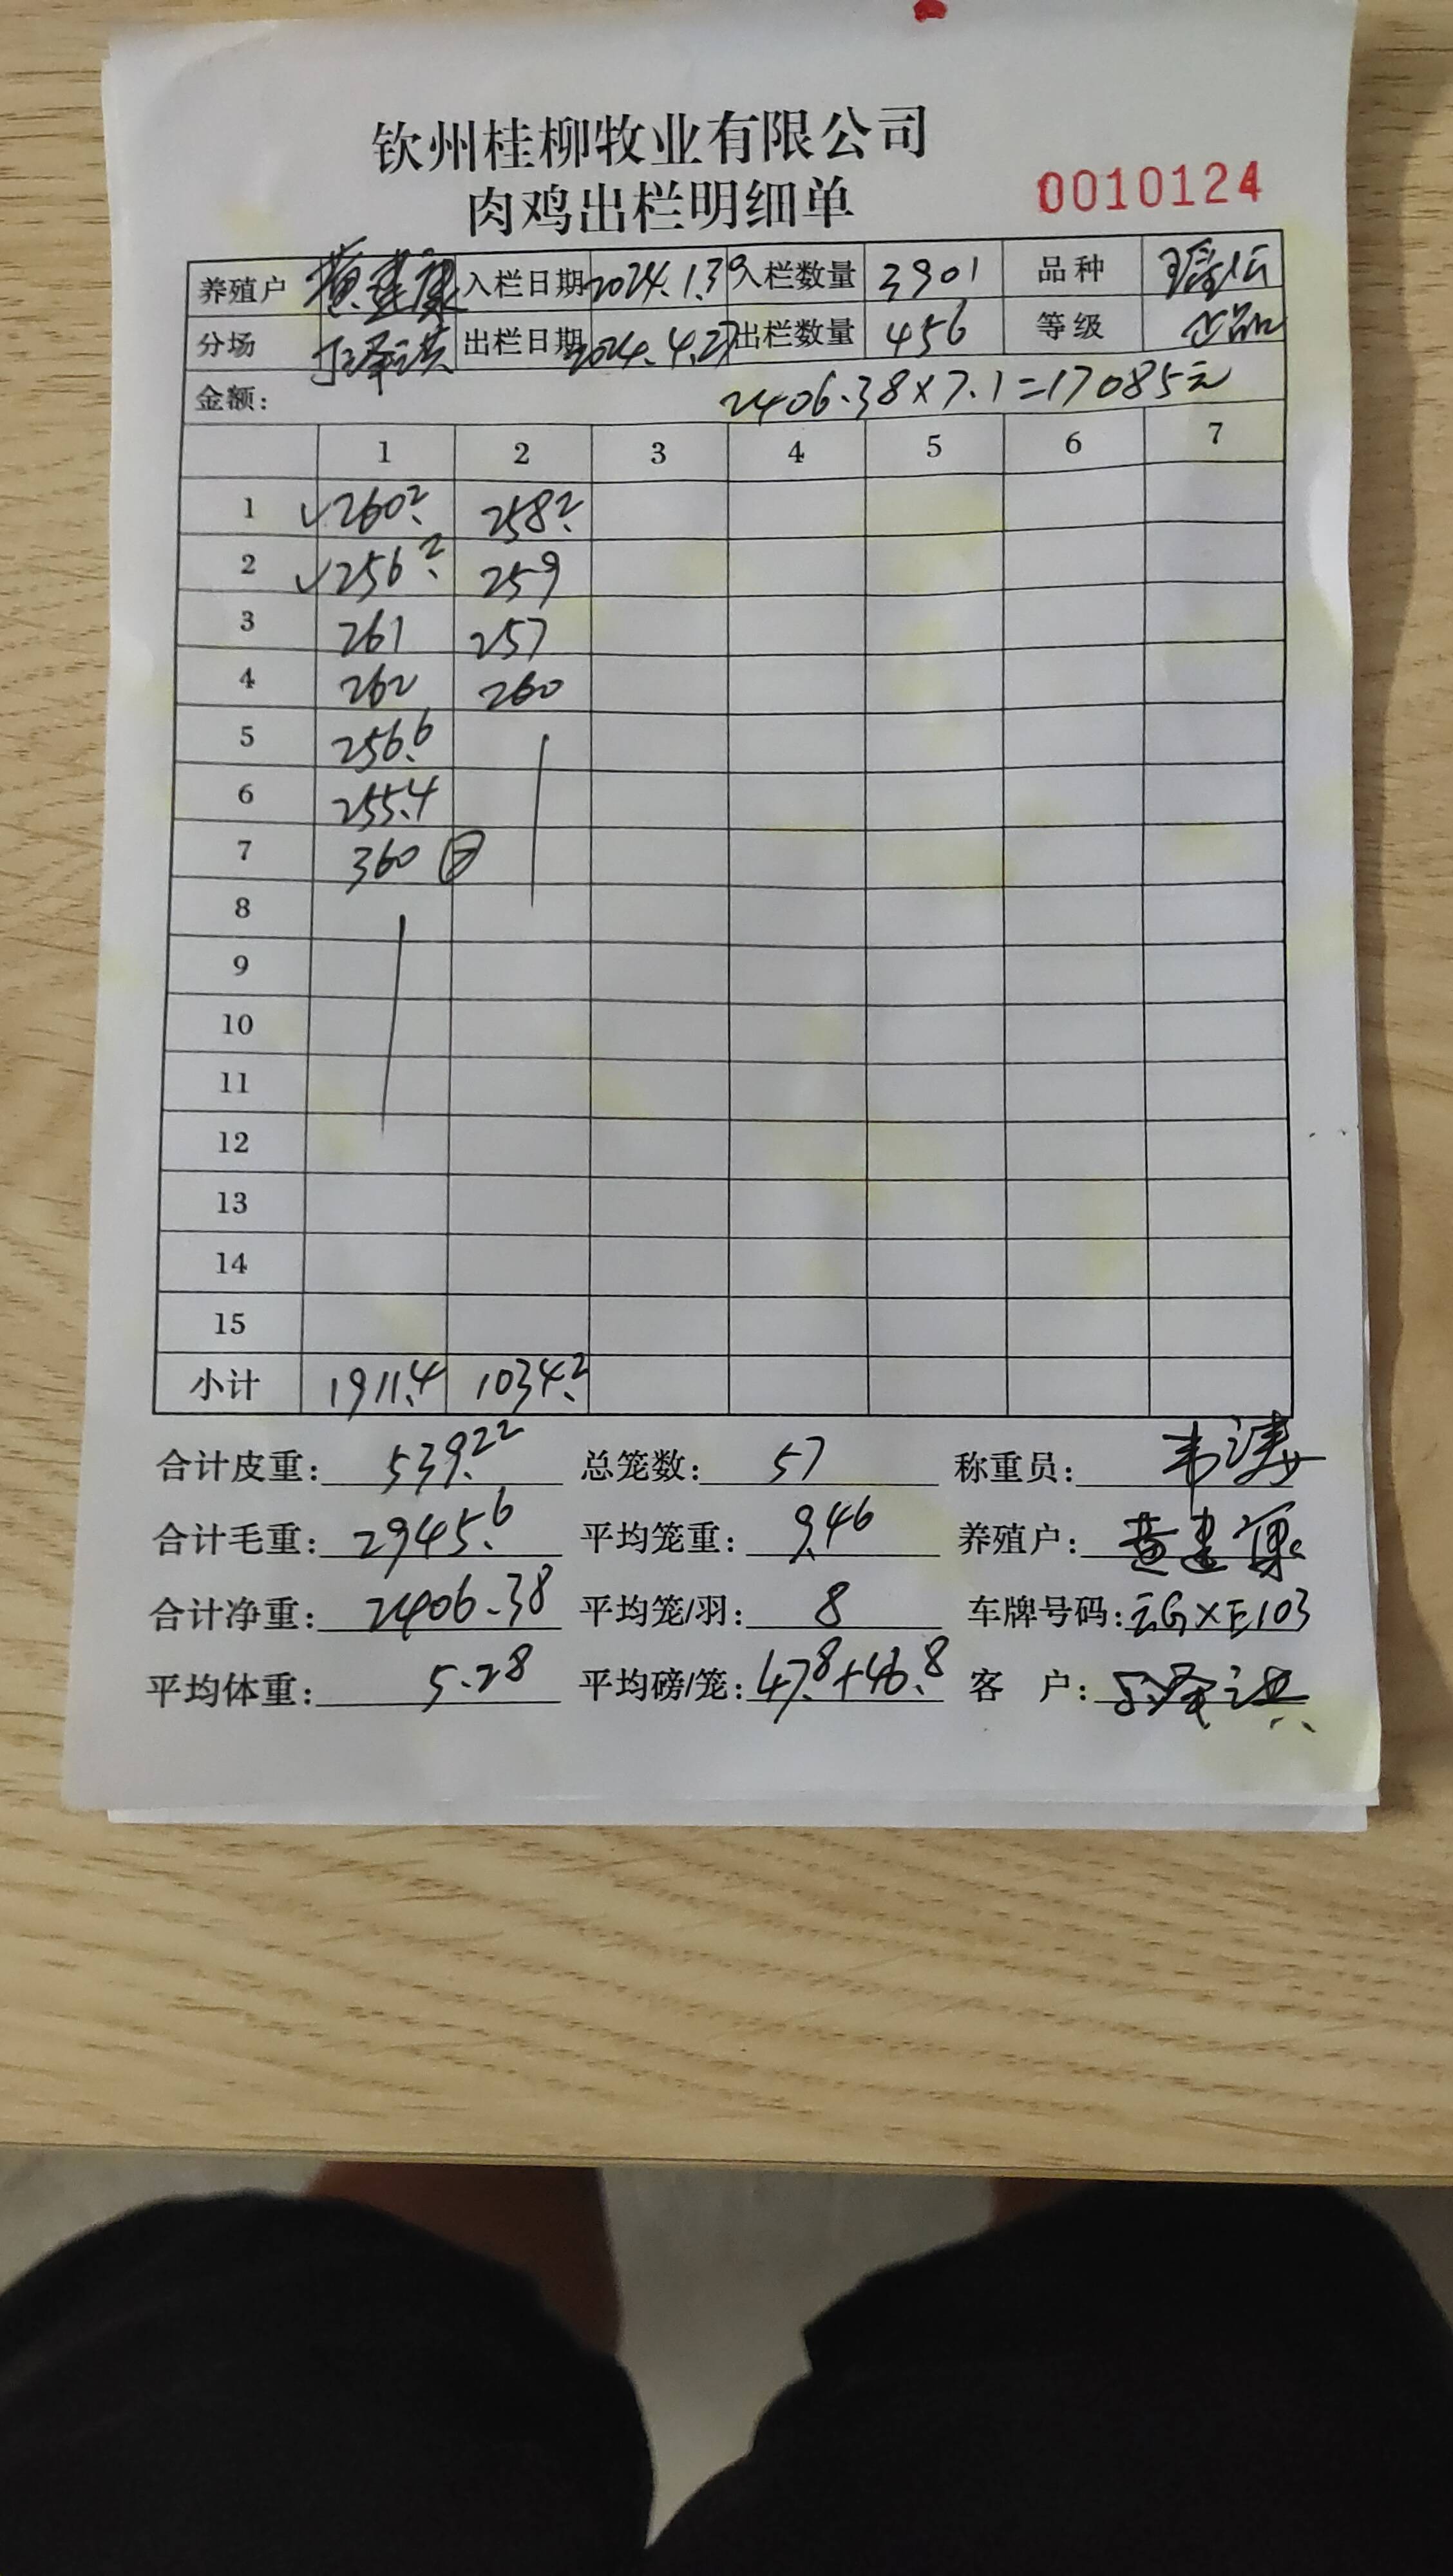 钦州桂柳牧业有限公司
肉鸡出栏明细单
0010124
养殖户 黄建康 入栏日期 2024.1.3 入栏数量 3901 品种
分场 出栏日期 2024.4.27 出栏数量 456 等级 正品
金额: 2406.38×7.1=17085元
1 2 3 4 5 6 7
1 260.2 258.2
2 256.2 259
3 261 257
4 262 260
5 256.6
6 255.4
7 360
8
9
10
11
12
13
14
15
小计 1911.4 1034.2
合计皮重: 539.22 总笼数: 57 称重员: 韦涛
合计毛重: 2945.6 平均笼重: 9.46 养殖户: 黄建康
合计净重: 2406.38 平均笼/羽: 8 车牌号码: 云GXE103
平均体重: 5.28 平均磅/笼: 47.8+46.8 客 户: